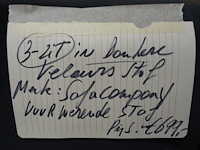 3-ZIT in donkere
Velours Stof
Merk: Sofacompany
VUUR werende Stof
Prijs: €699,-